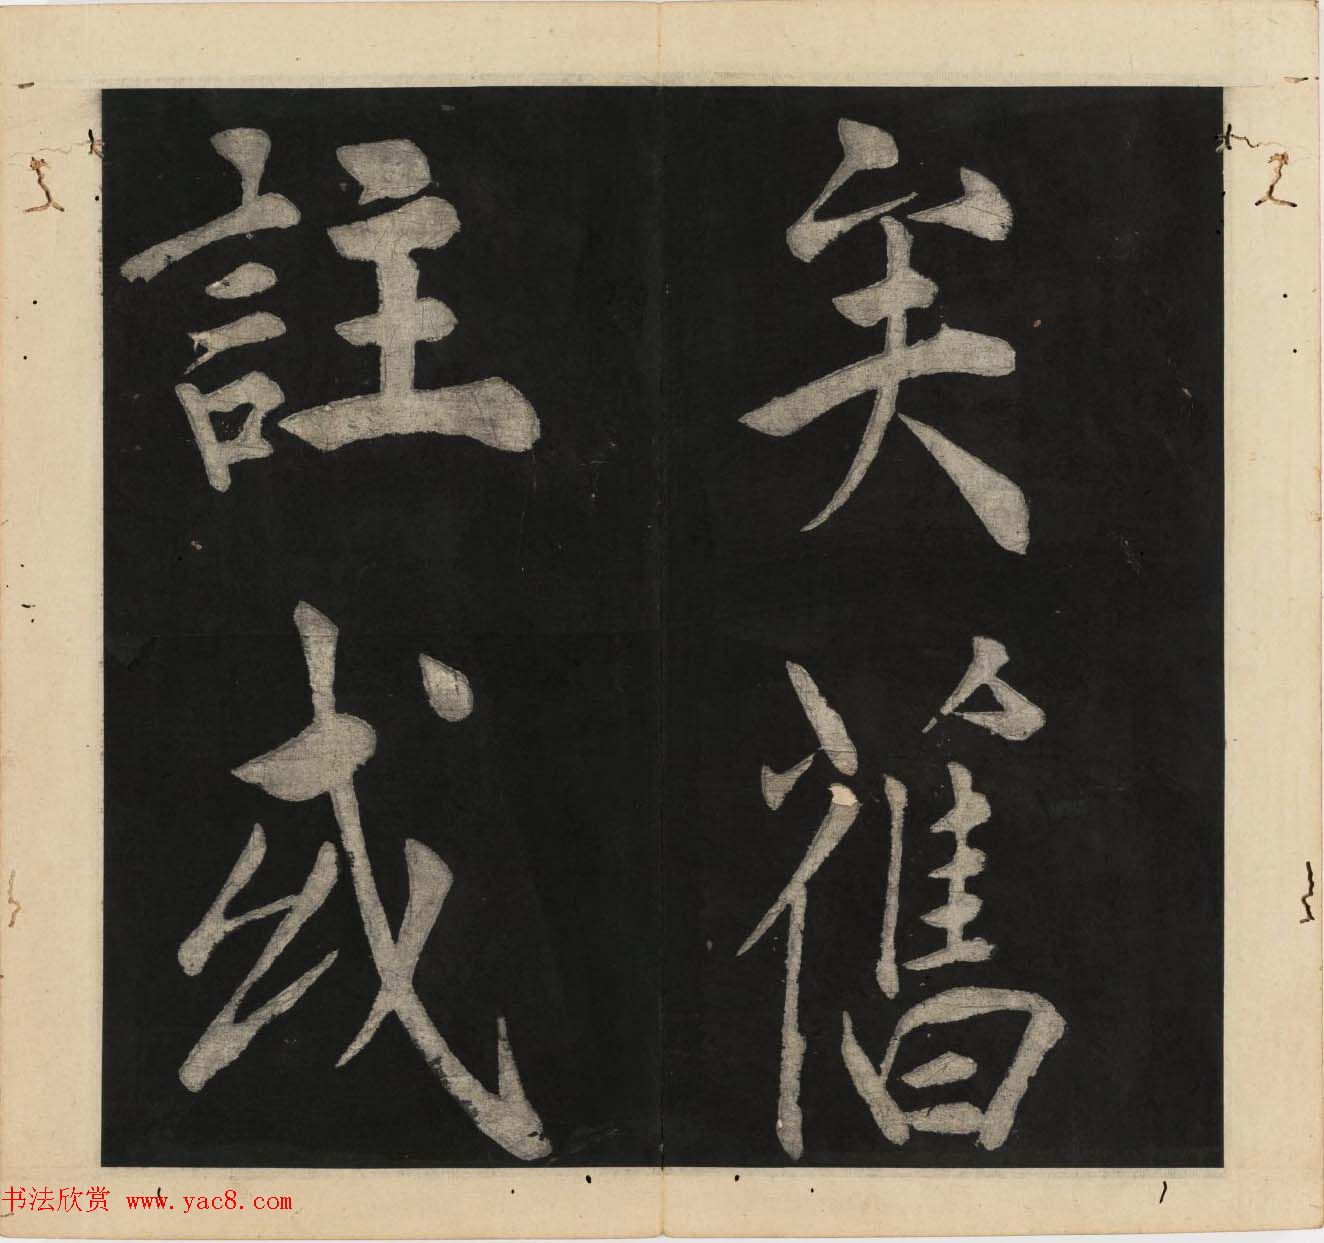 矣舊
註或
书法欣赏 www.yac8.com